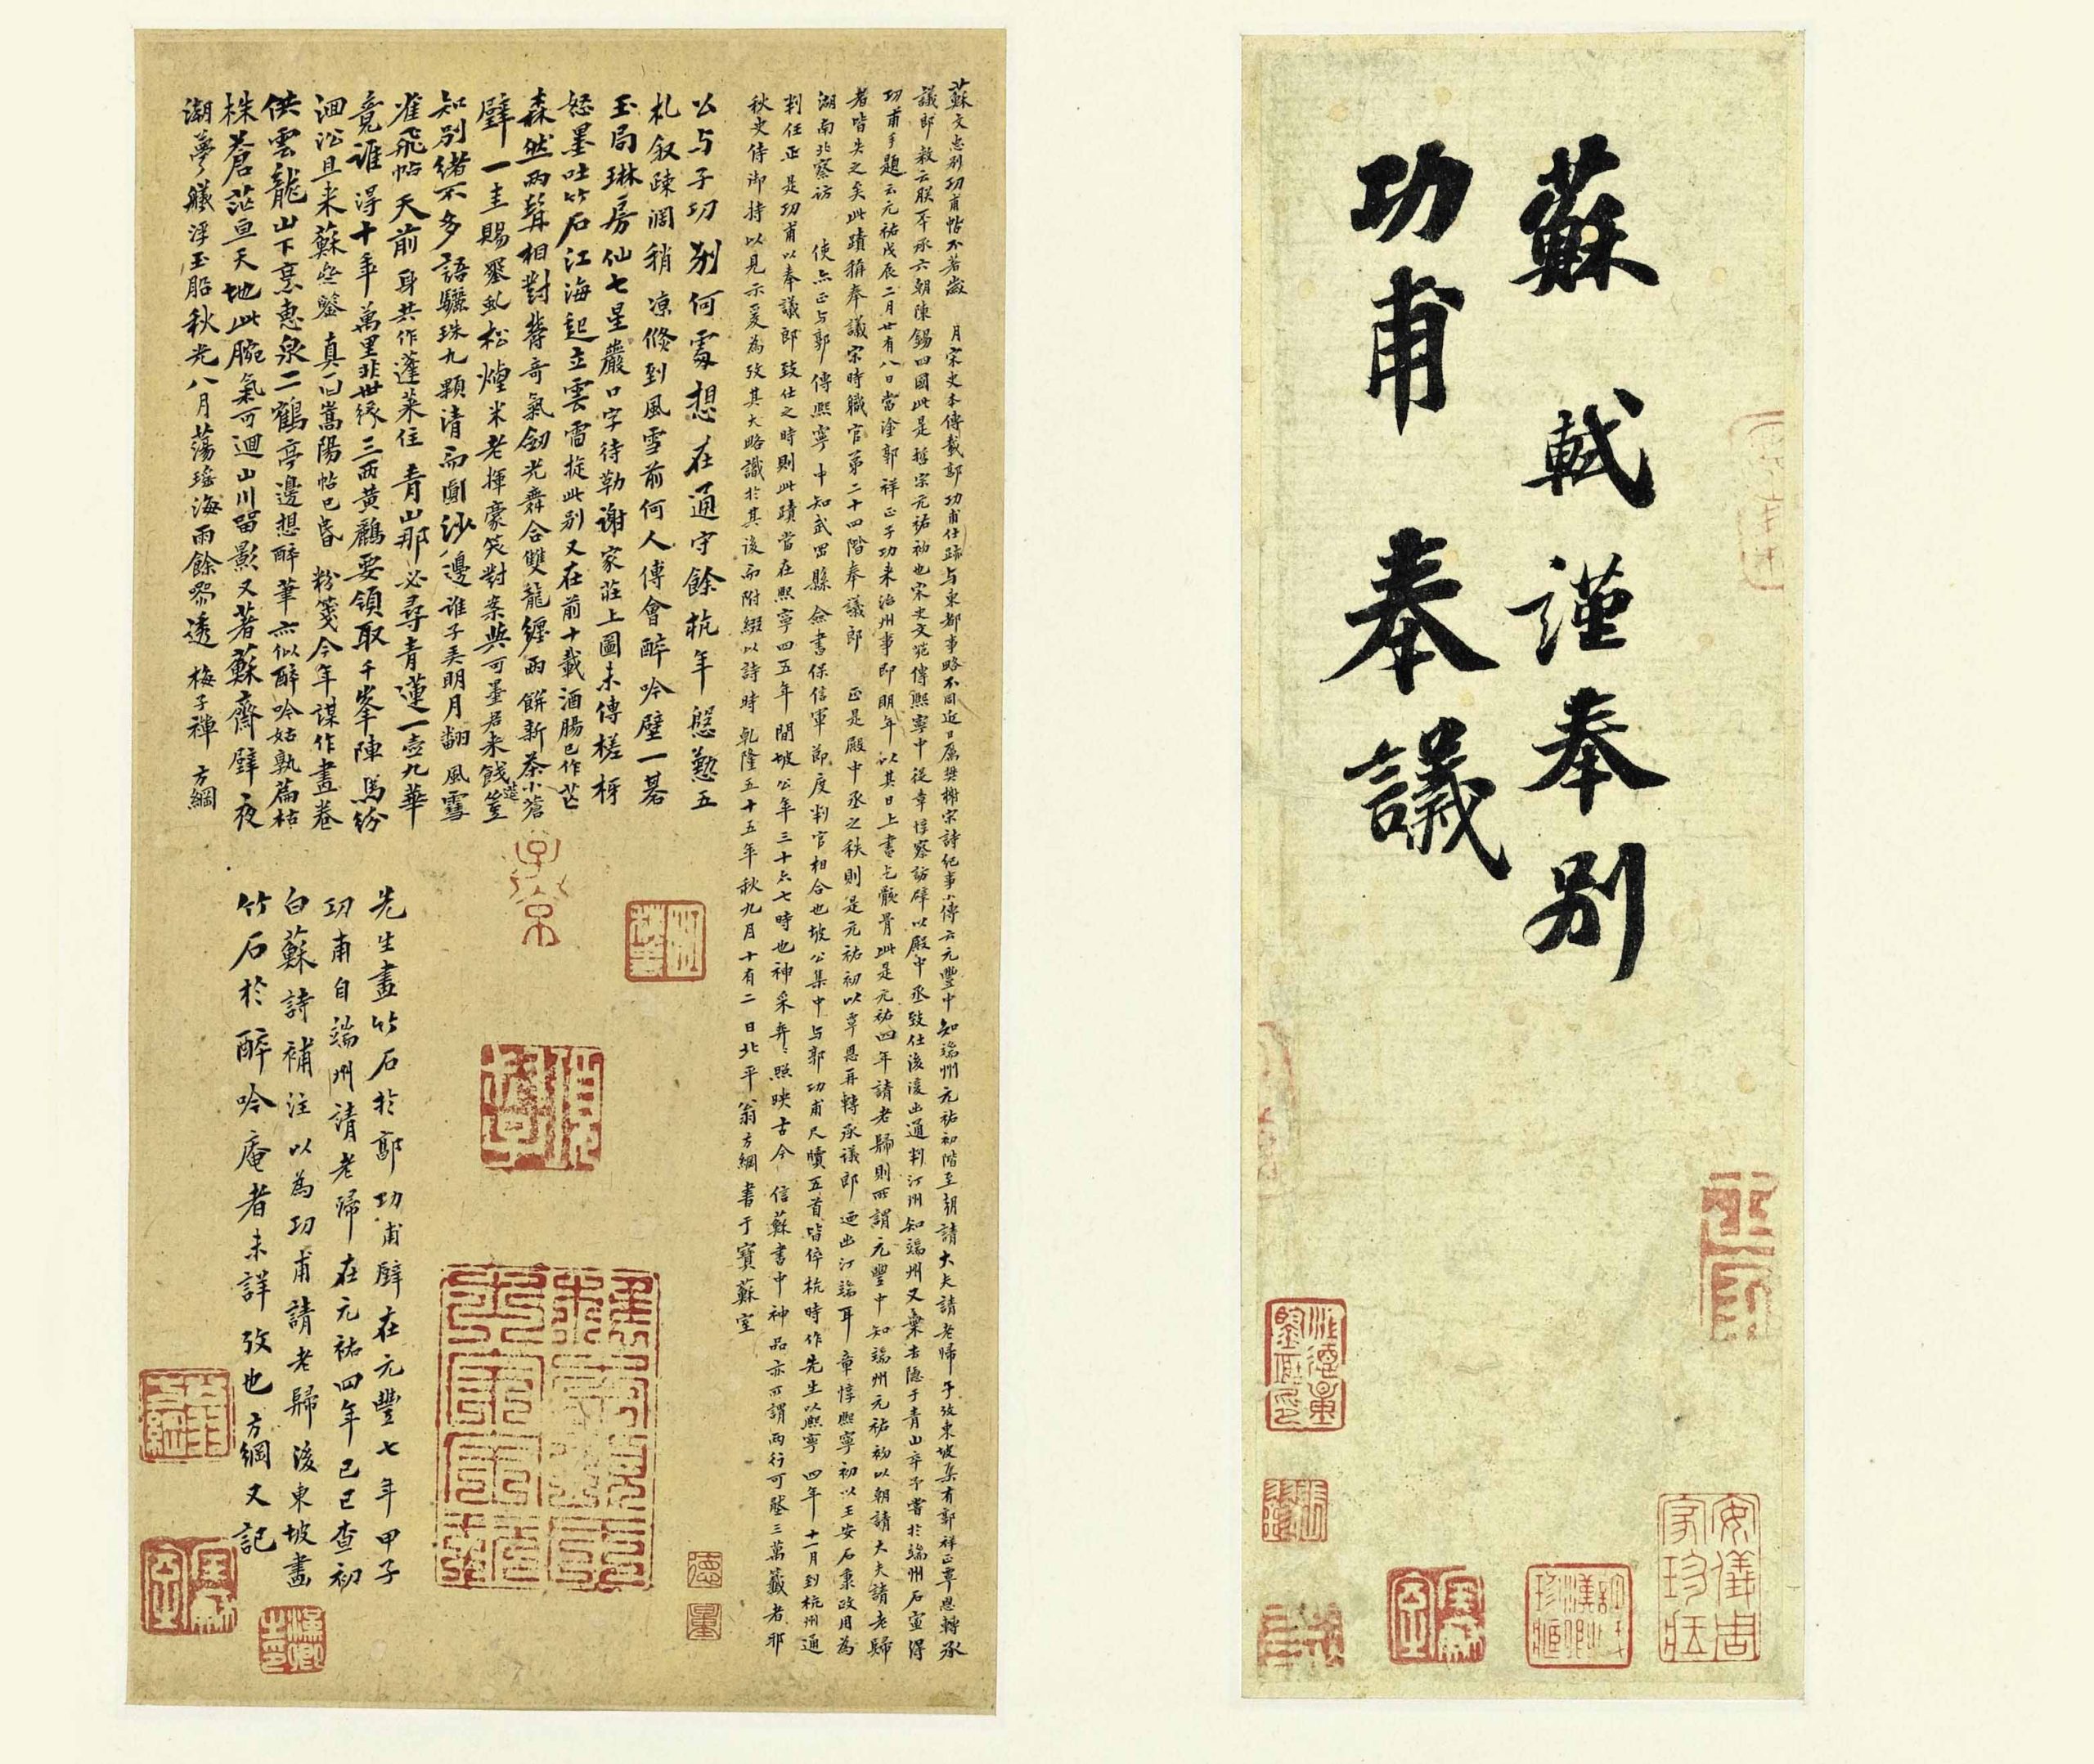 蘇軾謹奉別
功甫奉議
蘇文忠別功甫帖不著歲月宋史本傳載郭功甫仕蹟与東都事略不同近日厲樊榭宋詩紀事小傳云元豐中知端州元祐初階至朝請大夫請老歸予攷東坡集有郭祥正覃恩轉承
議郎敕云朕丕承六朝陳錫四國此是哲宗元祐初也宋史文苑傳熙寧中從章惇察訪辟以殿中丞致仕後復出通判汀州知端州又棄去隱于青山卒予嘗於端州石室得
功甫手題云元祐戊辰二月廿有八日當塗郭祥正子功来治州事即明年以其日上書乞骸骨此是元祐四年請老歸則所謂元豐中知端州元祐初以朝請大夫請老歸
者皆失之矣此蹟稱奉議宋時職官第二十四階奉議郎正是殿中丞之秩則是元祐初以覃恩再轉承議郎迺出汀端耳章惇熙寧初以王安石秉政用為
湖南北察訪使亦正与郭傳熙寧中知武岡縣僉書保信軍節度判官相合也坡公集中与郭功甫尺牘五首皆倅杭時作先生以熙寧四年十一月到杭州通
判任正是功甫以奉議郎致仕之時則此蹟當在熙寧四五年間坡公年三十六七時也神采弈〻照映古今信蘇書中神品亦所謂兩行可墜三萬籤者耶
秋史侍御持以見示爰為攷其大略識於其後而附綴以詩時乾隆五十五年秋九月十有二日北平翁方綱書于寶蘇室
公与子功別何處想在通守餘杭年慇懃五
札敘疎濶稍凉倏到風雪前何人傅會醉吟壁一碁
玉局琳房仙七星巖口字待勒谢家莊上圖未傳槎枒
怒墨吐竹石江海起立雲雷旋此别又在前十載酒腸已作芒
森然兩賢相對觭奇氣劒光舞合雙龍纏兩餅新茶小蒼
璧一圭賜墨虬松煙米老揮豪笑對案與可墨君来餞筵
知別緒不多語驪珠九顆清而圓沙邊誰子弄明月翻風雪
雀飛帖天前身共作蓬莱住青山那必尋青蓮一壺九華
竟誰得十年萬里非世緣三兩黄鸝要領取千峯陣馬紛
洄沿且来蘇室鑒真面嵩陽帖已昏粉箋今年謀作畫卷
供雲龍山下烹惠泉二鶴亭邊想醉筆亦似醉吟姑孰篇枯
株蒼茫亘天地此腕氣可迴山川留影又著蘇齋壁夜
潮夢艤浮玉船秋光八月蕩瑶海雨餘襟透梅子禪方綱
先生畫竹石於郭功甫壁在元豐七年甲子
功甫自端州請老歸在元祐四年己巳查初
白蘇詩補注以為功甫請老歸後東坡畫
竹石於醉吟庵者未詳攷也方綱又記
安儀周家珍藏
德量